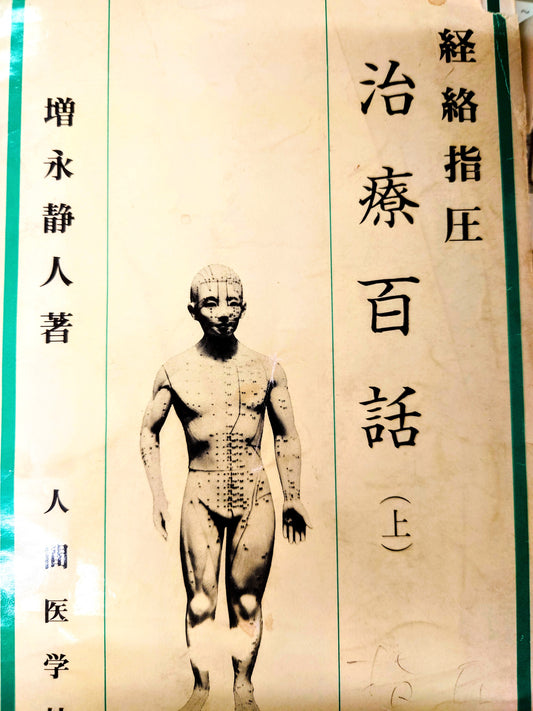 経絡指圧
治療百話
(上)
増永静人著
人間医学